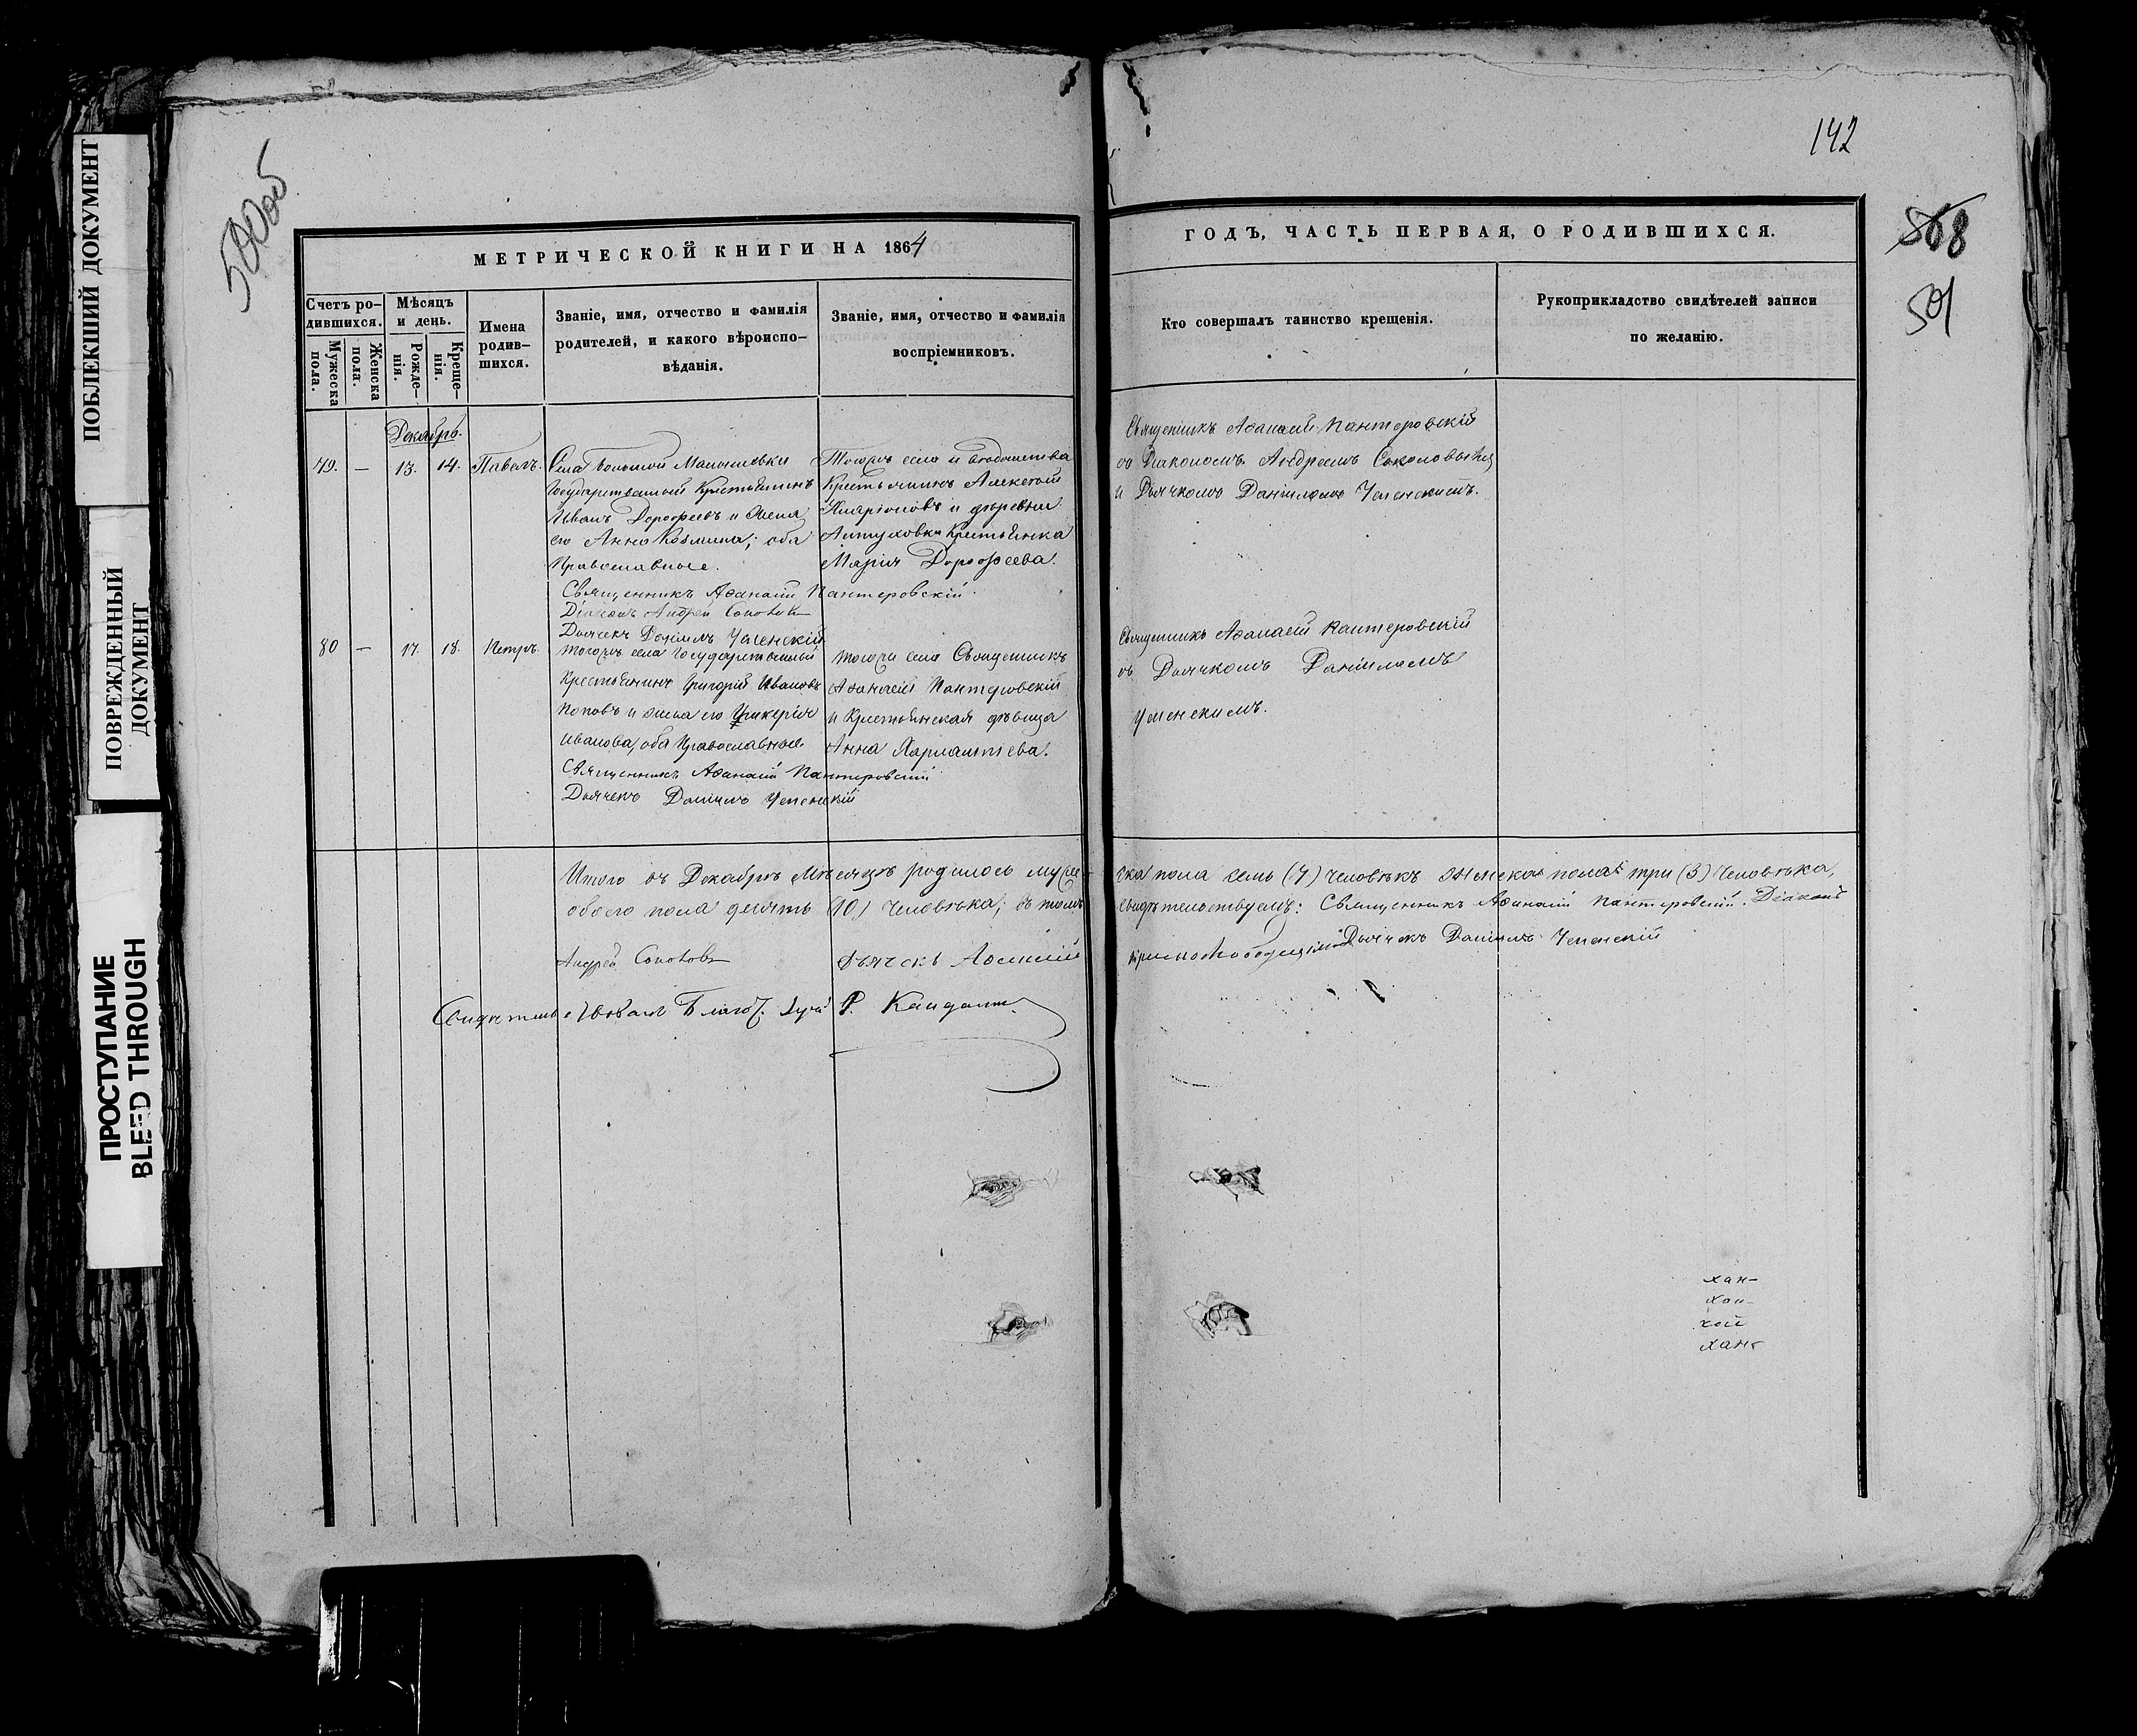 ПОБЛЕКШИЙ ДОКУМЕНТ
ПОВРЕЖДЕННЫЙ
ДОКУМЕНТ
ПРОСТУПАНИЕ
BLEED THROUGH
500об
МЕТРИЧЕСКОЙ КНИГИ НА 1864
Счетъ ро-
дившихся.
Мужеска
пола.
Женска
пола.
Мѣсяцъ
и день.
Рожде-
нія.
Креще-
нія.
Имена
родив-
шихся.
Званіе, имя, отчество и фамилія
родителей, и какого вѣроиспо-
вѣданія.
Званіе, имя, отчество и фамилія
воспріемниковъ.
Декабрь.
79. — 13. 14. Павелъ.
Села Большой
Государственный Крестьянинъ
Иванъ Дорофеевъ и жена
его Анна Козмина; оба
Православные.
Тогожъ села и
Крестьянинъ Алексѣй
Иларіоновъ и деревни
Крестьянка
Марія Дорофеева.
Священникъ Аѳанасій Пантеровскій
Діаконъ Андрей Соколовъ
Дьячекъ Даніилъ Успенскій
80 — 17. 18. Петръ.
тогожъ села Государственный
Крестьянинъ Григорій Ивановъ
Поповъ и жена его Гликерія
Иванова, оба Православные.
тогожъ села Священникъ
Аѳанасій Пантеровскій
и Крестьянская дѣвица
Анна Харлампіева.
Священникъ Аѳанасій Пантеровскій
Дьячекъ Даніилъ Успенскій
Итого въ Декабрѣ Мѣсяцѣ родилось муже-
обоего пола десять (10) человѣка; въ томъ
Андрей Соколовъ дьячекъ
Благоч. Р.
142
568
501
ГОДЪ, ЧАСТЬ ПЕРВАЯ, О РОДИВШИХСЯ.
Кто совершалъ таинство крещенія.
Рукоприкладство свидѣтелей записи
по желанію.
Священникъ Аѳанасій Пантеровскій
съ Діакономъ Андреемъ Соколовымъ
и Дьячкомъ Даніиломъ Успенскимъ.
Священникъ Аѳанасій Пантеровскій
съ Дьячкомъ Даніиломъ
Успенскимъ.
ска пола семь (7) человѣкъ женска пола три (3) человѣка,
свидѣтельствуемъ: Священникъ Аѳанасій Пантеровскій. Діаконъ
Дьячекъ Даніилъ Успенскій